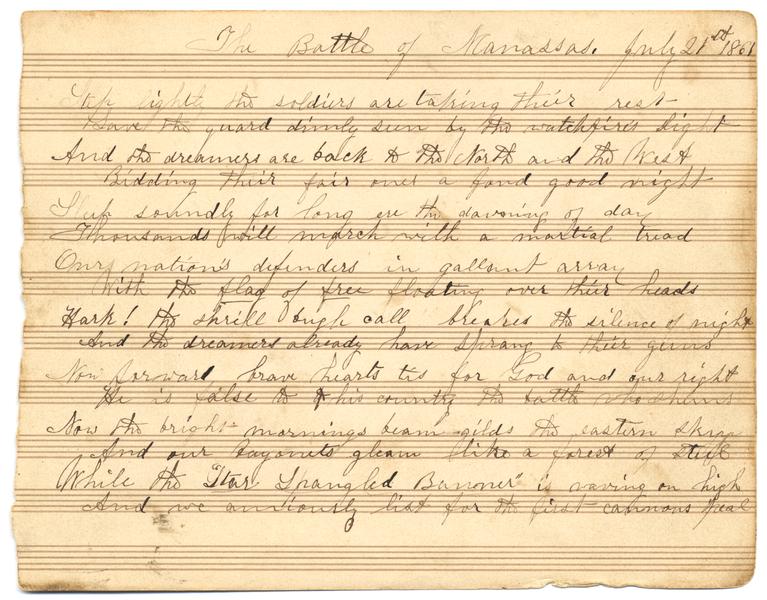 The Battle of Manassas. July 21st 1861
Step lightly the soldiers are taking their rest
Save the guard dimly seen by the watchfire's light
And the dreamers are back to the North and the West
Bidding their fair ones a fond good night
Sleep soundly for long ere the dawning of day
Thousands will march with a martial tread
Our nation's defenders in gallant array
With the flag of free floating over their heads
Hark! the shrill bugle call breakes the silence of night
And the dreamers already have sprang to their guns
Now forward brave hearts tis for God and our right
He is false to his country the battle who shuns
Now the bright mornings beam gilds the eastern sky
And our bayonets gleam like a forest of steel
While the "Star Spangled Banner" is waving on high
And we anxiously list for the first cannons peal